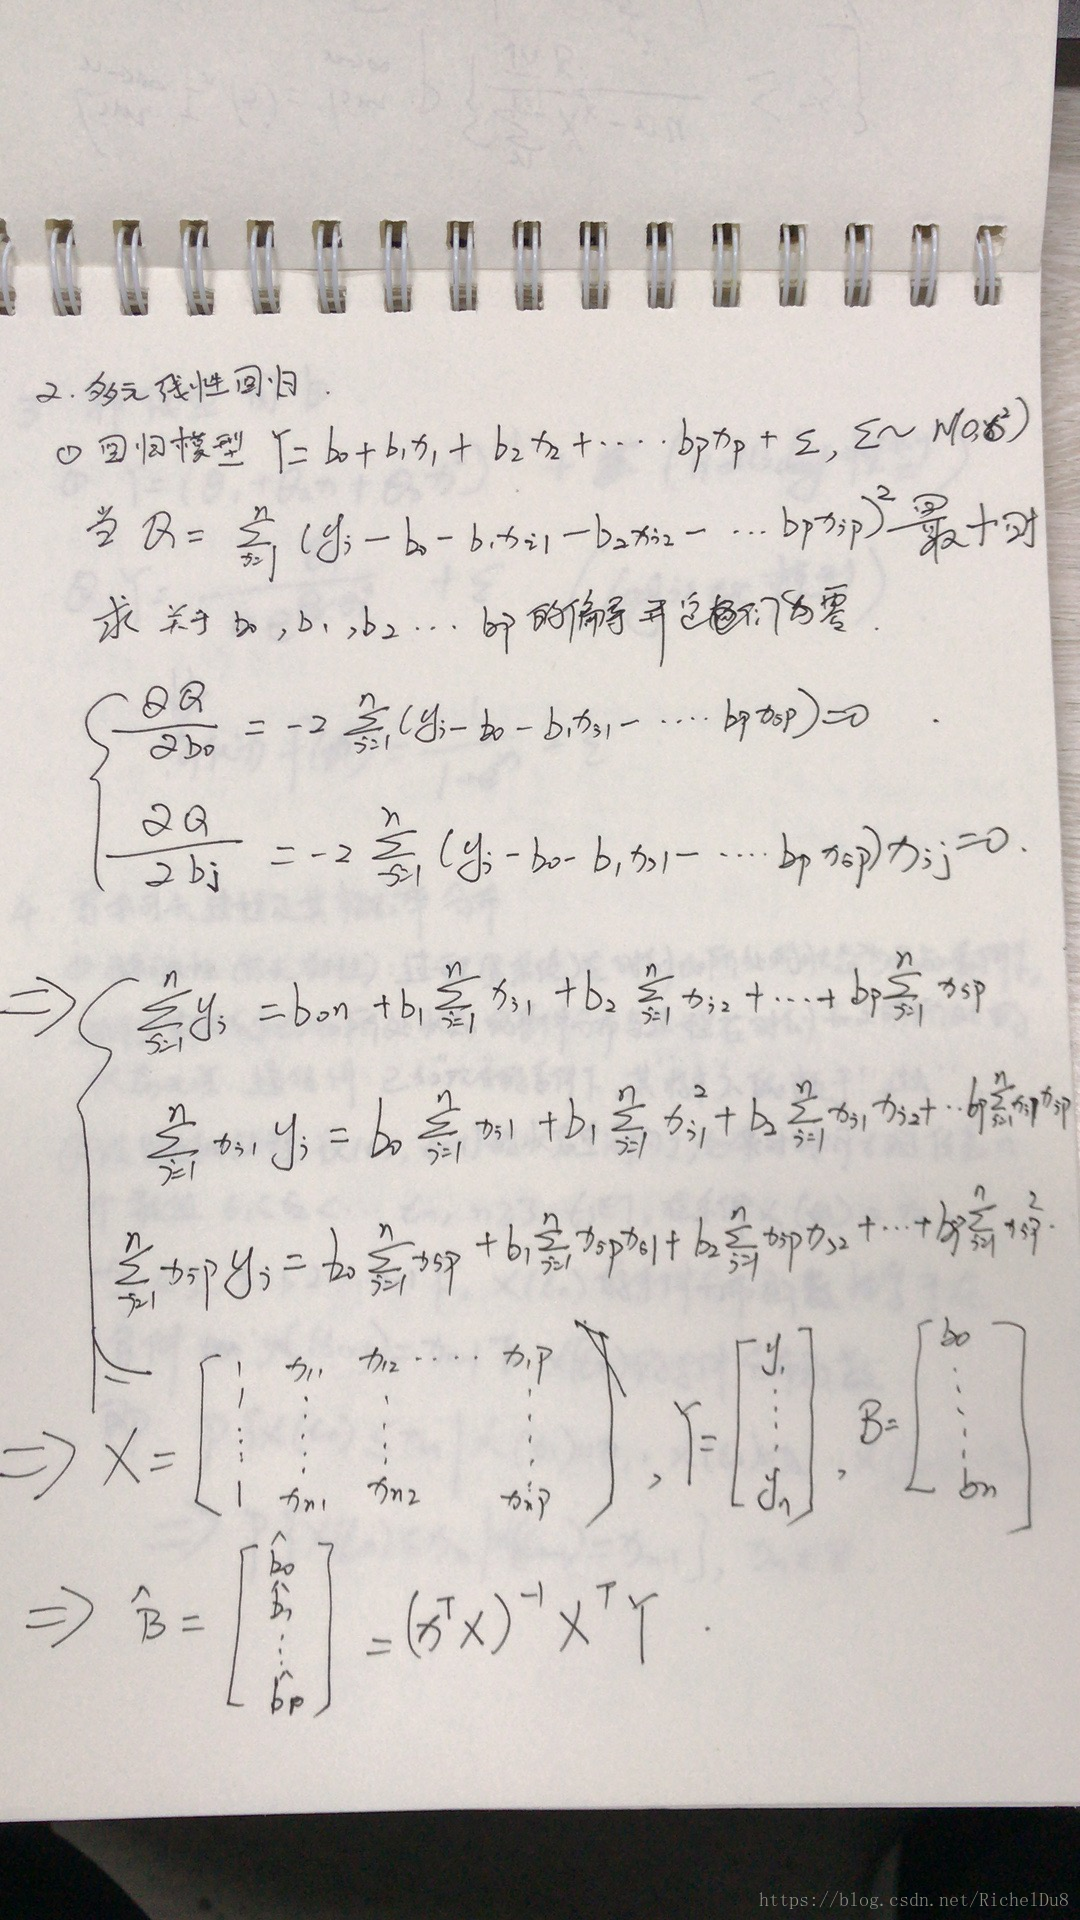 2. 多元线性回归.
① 回归模型 Y = b₀ + b₁x₁ + b₂x₂ + ···· bₚxₚ + Σ, Σ ~ N(0,σ²)
当 Q = Σⁿⱼ₌₁ (yⱼ - b₀ - b₁xⱼ₁ - b₂xⱼ₂ - ··· bₚxⱼₚ)² 最小时
求关于 b₀, b₁, b₂ ··· bₚ 的偏导并 为零.
∂Q/∂b₀ = -2 Σⁿⱼ₌₁ (yⱼ - b₀ - b₁xⱼ₁ - ···· bₚxⱼₚ) = 0 .
∂Q/∂bj = -2 Σⁿⱼ₌₁ (yⱼ - b₀ - b₁xⱼ₁ - ···· bₚxⱼₚ) xᵢⱼ = 0 .
=> Σⁿⱼ₌₁ yⱼ = b₀n + b₁ Σⁿⱼ₌₁ xⱼ₁ + b₂ Σⁿⱼ₌₁ xⱼ₂ + ··· + bₚ Σⁿⱼ₌₁ xⱼₚ
Σⁿⱼ₌₁ xⱼ₁ yⱼ = b₀ Σⁿⱼ₌₁ xⱼ₁ + b₁ Σⁿⱼ₌₁ xⱼ₁² + b₂ Σⁿⱼ₌₁ xⱼ₁ xⱼ₂ + ·· bₚ Σⁿⱼ₌₁ xⱼₚ xⱼₚ
Σⁿⱼ₌₁ xⱼₚ yⱼ = b₀ Σⁿⱼ₌₁ xⱼₚ + b₁ Σⁿⱼ₌₁ xⱼₚ xⱼ₁ + b₂ Σⁿⱼ₌₁ xⱼₚ xⱼ₂ + ··· + bₚ Σⁿⱼ₌₁ xⱼₚ² .
=> X = [1 x₁₁ x₁₂ ···· x₁ₚ ⋮ 1 xₙ₁ xₙ₂ xₙₚ], Y = [y₁ ⋮ yₙ], B = [b₀ ⋮ bₙ]
=> B̂ = [b̂₀ b̂₁ ⋮ b̂ₚ] = (xᵀX)⁻¹ Xᵀ Y .
https://blog.csdn.net/RichelDu8